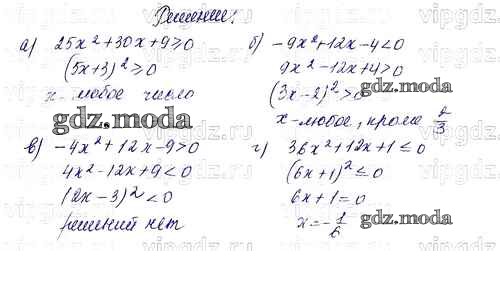 Решение:
а) 25x² + 30x + 9 ≥ 0
(5x + 3)² ≥ 0
x - любое число
б) -9x² + 12x - 4 < 0
9x² - 12x + 4 > 0
(3x - 2)² > 0
x - любое, кроме 2/3
в) -4x² + 12x - 9 > 0
4x² - 12x + 9 < 0
(2x - 3)² < 0
решений нет
г) 36x² + 12x + 1 ≤ 0
(6x + 1)² ≤ 0
6x + 1 = 0
x = -1/6
gdz.moda
gdz.moda
gdz.moda
gdz.moda
vipgdz.ru